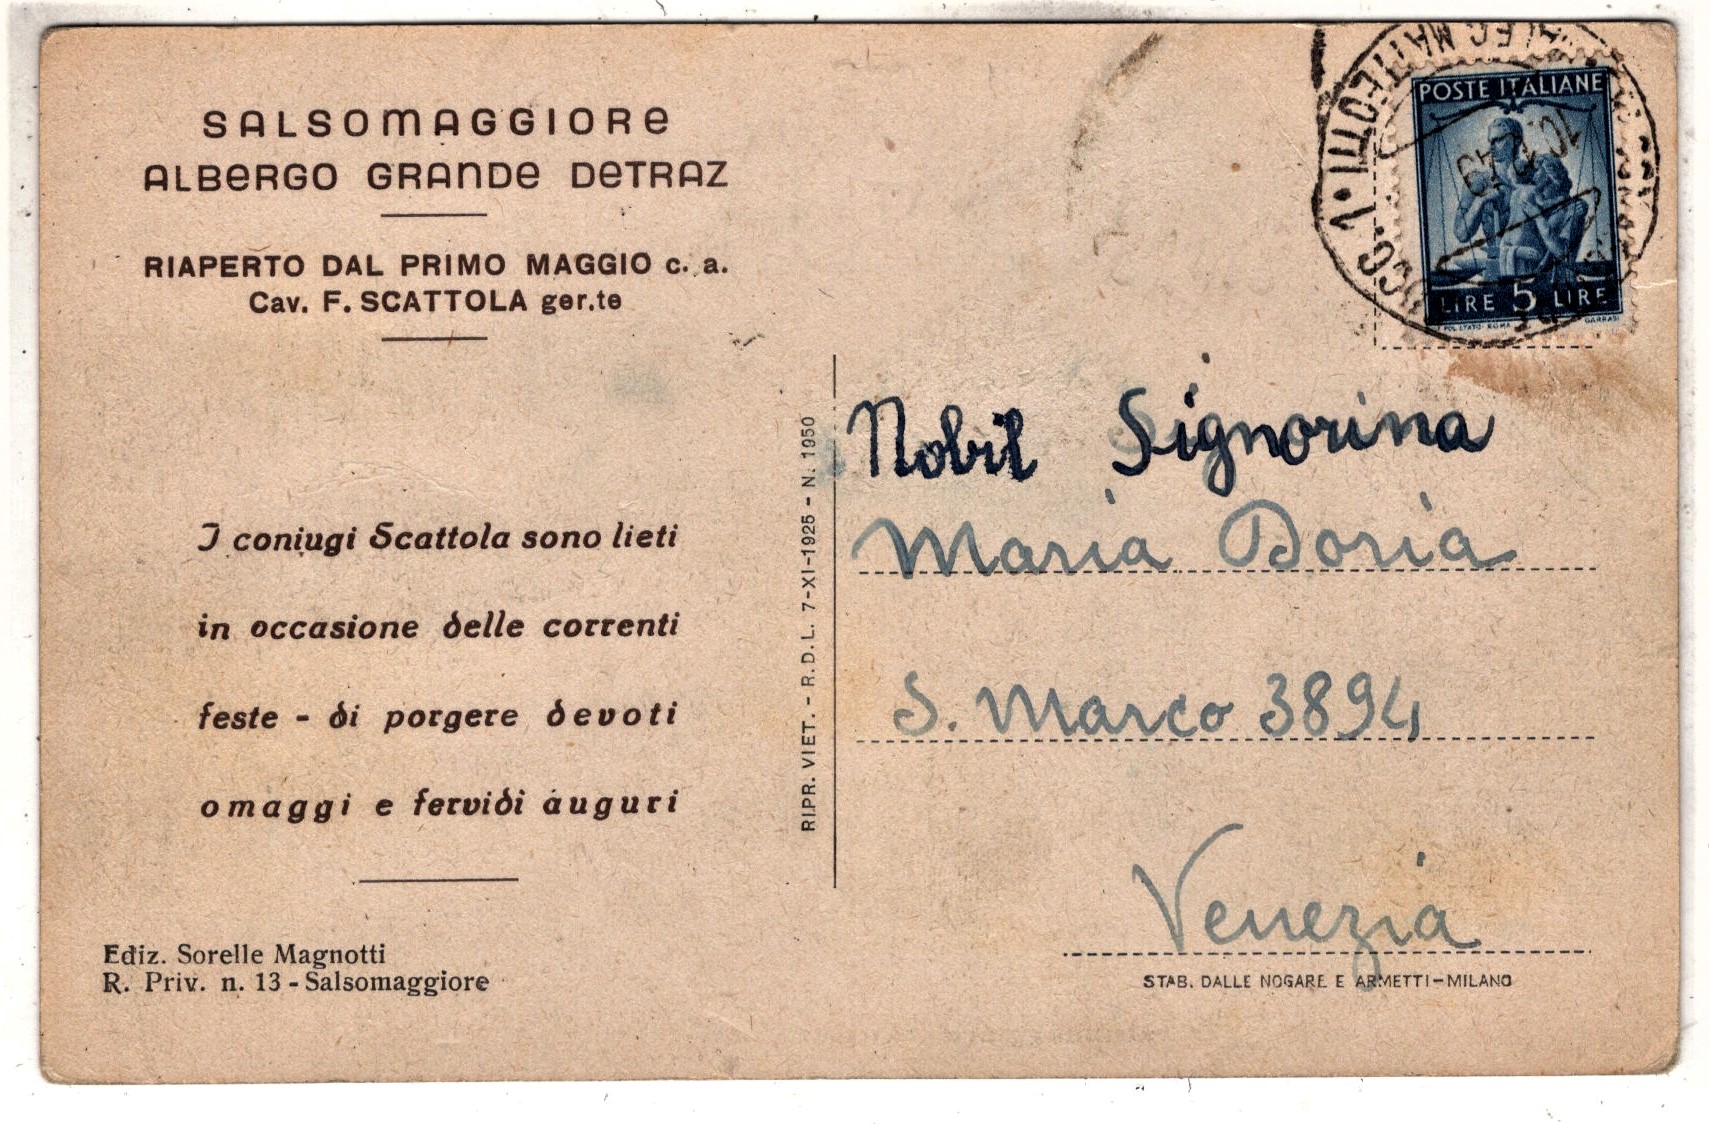 SALSOMAGGIORE
ALBERGO GRANDE DETRAZ
RIAPERTO DAL PRIMO MAGGIO c. a.
Cav. F. SCATTOLA ger.te
I coniugi Scattola sono lieti
in occasione delle correnti
feste - di porgere devoti
omaggi e fervidi auguri
Ediz. Sorelle Magnotti
R. Priv. n. 13 - Salsomaggiore
RIPR. VIET. - R. D. L. 7-XI-1925 - N. 1950
POSTE ITALIANE
LIRE 5 LIRE
Nobil Signorina
Maria Doria
S. Marco 3894
Venezia
STAB. DALLE NOGARE E ARMETTI - MILANO